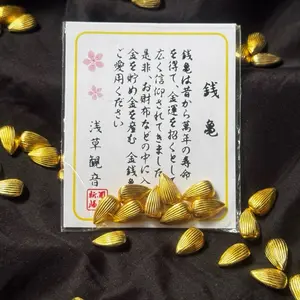 銭亀
銭亀は昔から萬年の寿命
を得て、金運を招くとして
広く信仰されてきました
是非、お財布などの中に入
金を貯め金を産む 金銭
ご愛用ください
浅草観音